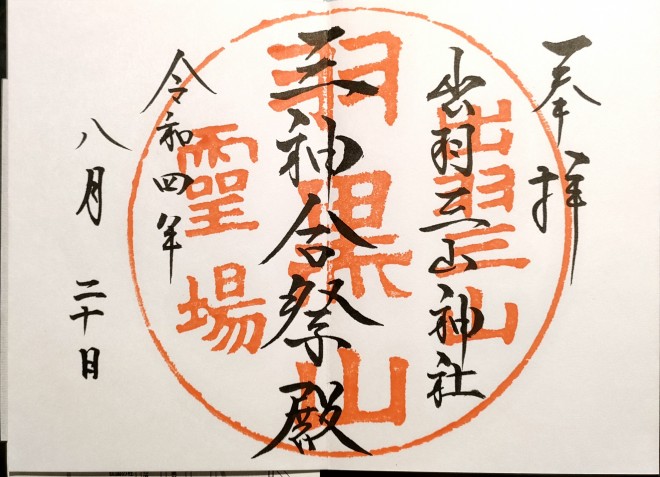 奉拝
出羽三山神社
三神合祭殿
令和四年
八月二十日
出羽三山
羽黒山
霊場